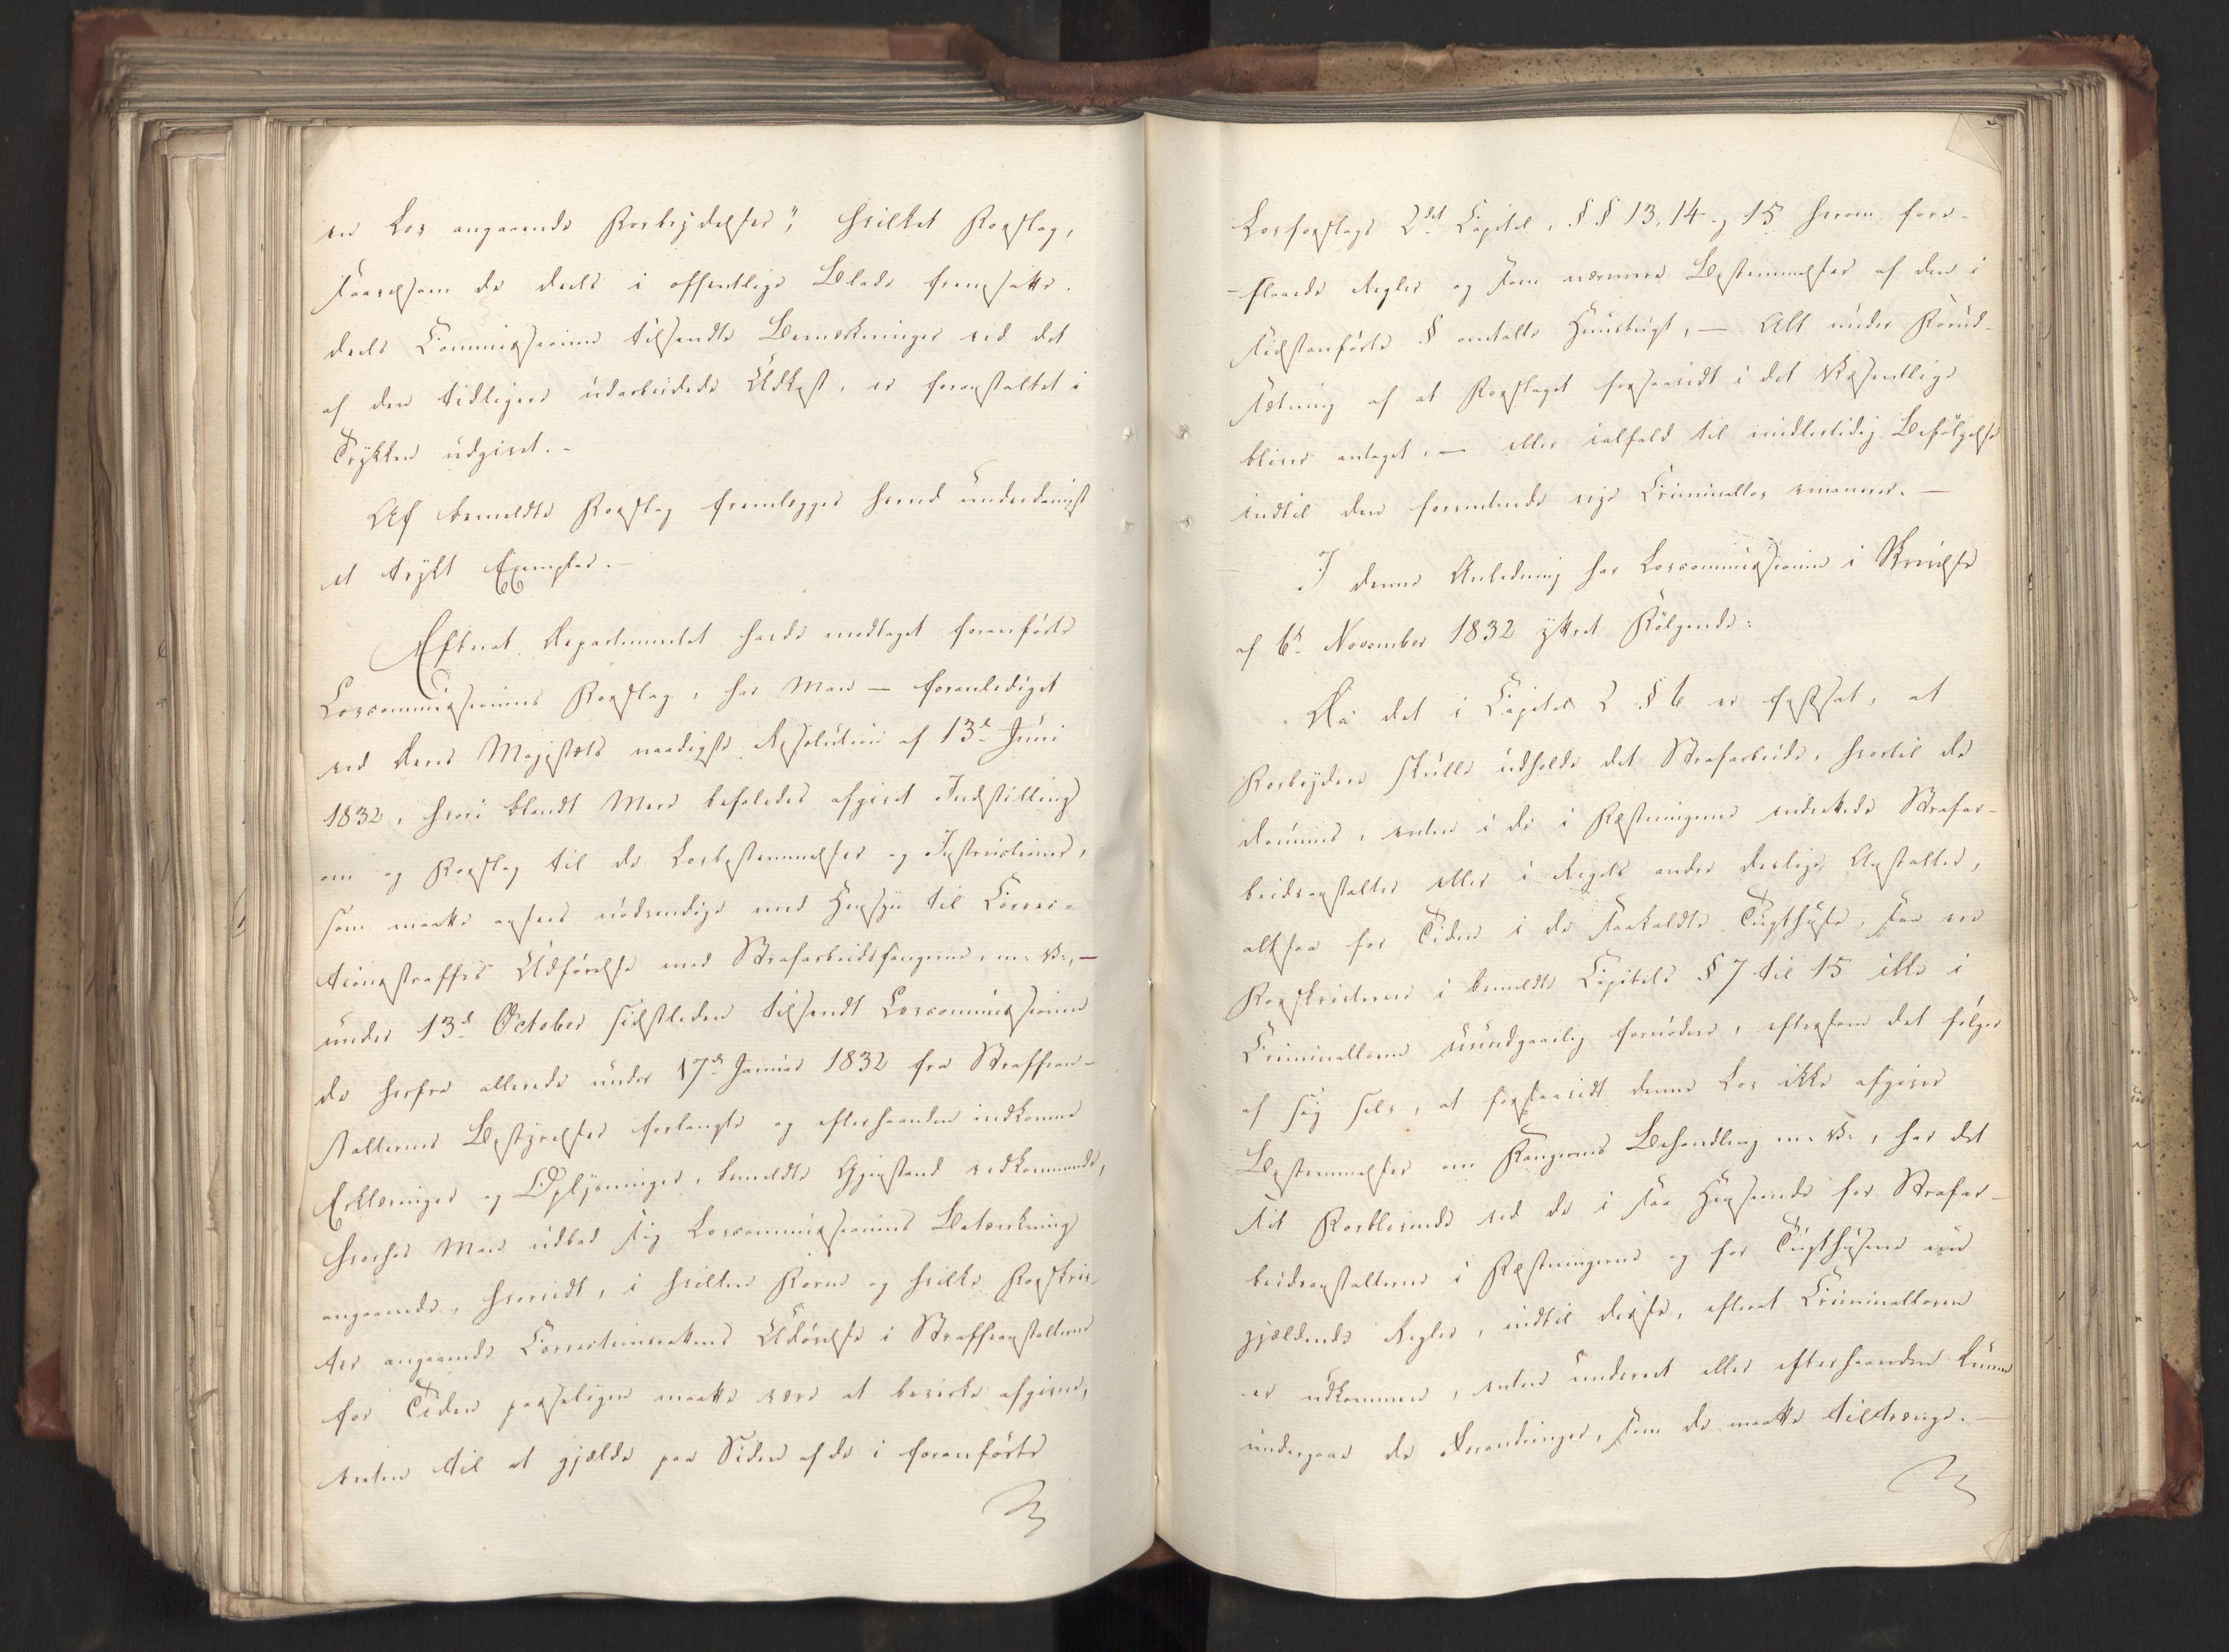 en Lov angaaende Forbrydelser", hvilket Forslag,
saavelsom de deels i offentlige Blade fremsatte,
deels Commissionen tilsendte Bemærkninger ved det
af den tidligere udarbeidede Udkast, er foranstaltet i
Trykken udgivet.-
Af bemeldte Forslag fremlægges herved underdanigst
et trykt Exemplar.-
Efterat Departementet havde modtaget foranførte
Lovcommissionens Forslag, har Man - foranlediget
ved Deres Majestæts naadigste Resolution af 13de Juni
1832, hvori blandt Meer befaledes afgivet Indstilling
om og Forslag til de Lovbestemmelser og Instructioner,
som maatte ansees nødvendige med Hensyn til Correc=
tionsstraffes Udførelse mod Strafarbeidsfangerne, m. V., -
under 13de October sidstleden tilsendt Lovcommissionen
de herfra allerede under 17de Januar 1832 fra Straffean-
stalternes Bestyrelser forlangte og efterhaanden indkomne
Erklæringer og Oplysninger, bemeldte Gjenstand vedkommende,
hvorhos Man udbad sig Lovcommissionens Betænkning
angaaende, hvorvidt, i hvilken Form og hvilke Forskrif-
ter angaaende Correctionsrettens Udøvelse i Straffeanstalterne
for Tiden passeligen maatte være at bevirke afgivne,
enten til at gjælde paa Siden af de i foranførte
Lovforslags 2det Capitel, §§ 13, 14 og 15 herom fore-
-slaaede Regler og som nærmere Bestemmelser af den i
sidstanførte § omtalte Huustugt, - Alt under Forud-
sætning af at Forslaget forsaavidt i det Væsentlige
bliver antaget, - eller ialfald til midlertidig Befølgelse
indtil den forventende nye Criminallov emanerer.-
I denne Anledning har Lovcommissionen i Skrivelse
af 6te November 1832 yttret Følgende:
Da det i Capitel 2 § 6 er fastsat, at
Forbrydere skulle udholde det Strafarbeide, hvortil de
dømmes, enten i de i Fæstningerne indrettede Strafar-
beidsanstalter eller i Rigets andre deslige Anstalter,
altsaa for Tiden i de saakaldte Tugthuse, saa ere
Forskrifterne i bemeldte Capitels § 7 til 15 ikke i
Criminalloven uundgaaelig fornødne, eftersom det følger
af sig selv, at forsaavidt denne Lov ikke afgiver
Bestemmelser om Fangernes Behandling m. V., har det
sit Forblivende ved de i saa Henseende for Strafar-
beidsanstalterne i Fæstningerne og for Tugthusene nu
gjældende Regler, indtil disse, efterat Criminalloven
er udkommen, enten underet eller efterhaanden kunne
undergaae de Forandringer, som de maatte tiltrænge.-